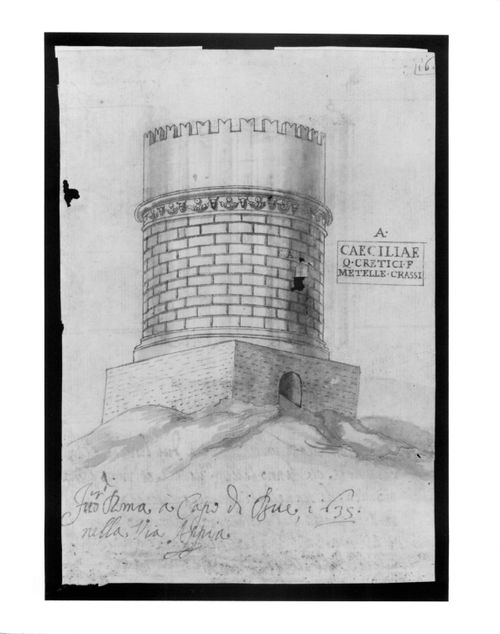 16
A·
CAECILIAE
Q·CRETICI·F
METELLE·CRASSI
A
Roma a Capo di Bue, 1635.
nella Via Appia